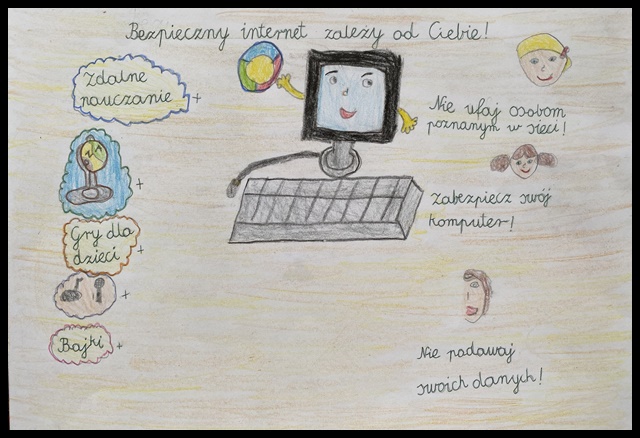 Bezpieczny internet zależy od Ciebie!
Zdalne
nauczanie +
+
Gry dla
dzieci +
+
Bajki +
Nie ufaj osobom
poznanym w sieci!
Zabezpiecz swój
komputer!
Nie podawaj
swoich danych!